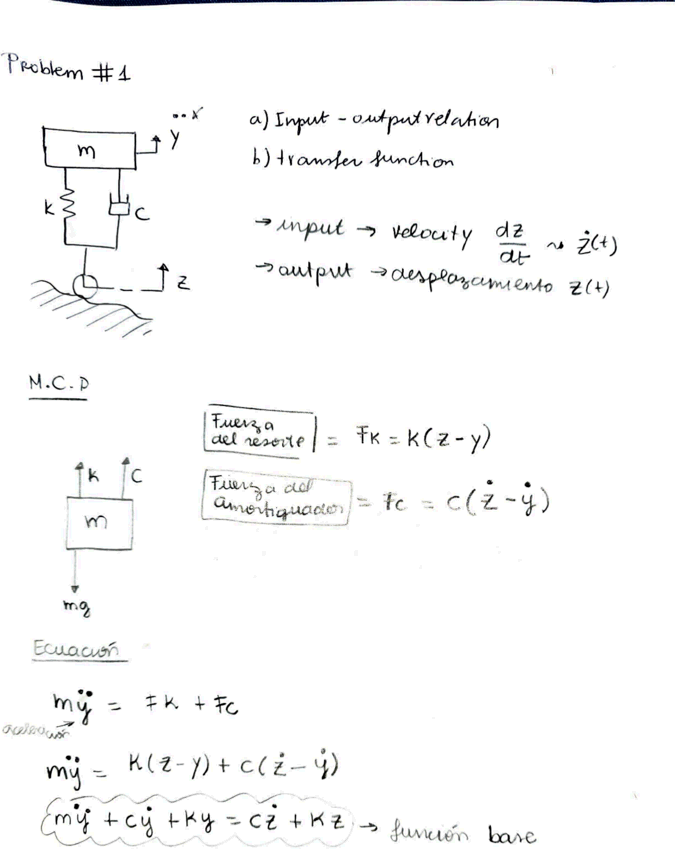 Problem #1
¨ x
m
y
k
c
z
a) Input - output relation
b) transfer function
→ input → velocity dz/dt ~ ż(t)
→ output → desplazamiento z(t)
M.C.D
k
c
m
mg
Fuerza del resorte = Fk = k(z-y)
Fuerza del amortiguador = Fc = c(ż-ẏ)
Ecuación
mÿ = Fk + Fc
mÿ = k(z-y) + c(ż-ẏ)
mÿ + cẏ + ky = cż + kz → función base